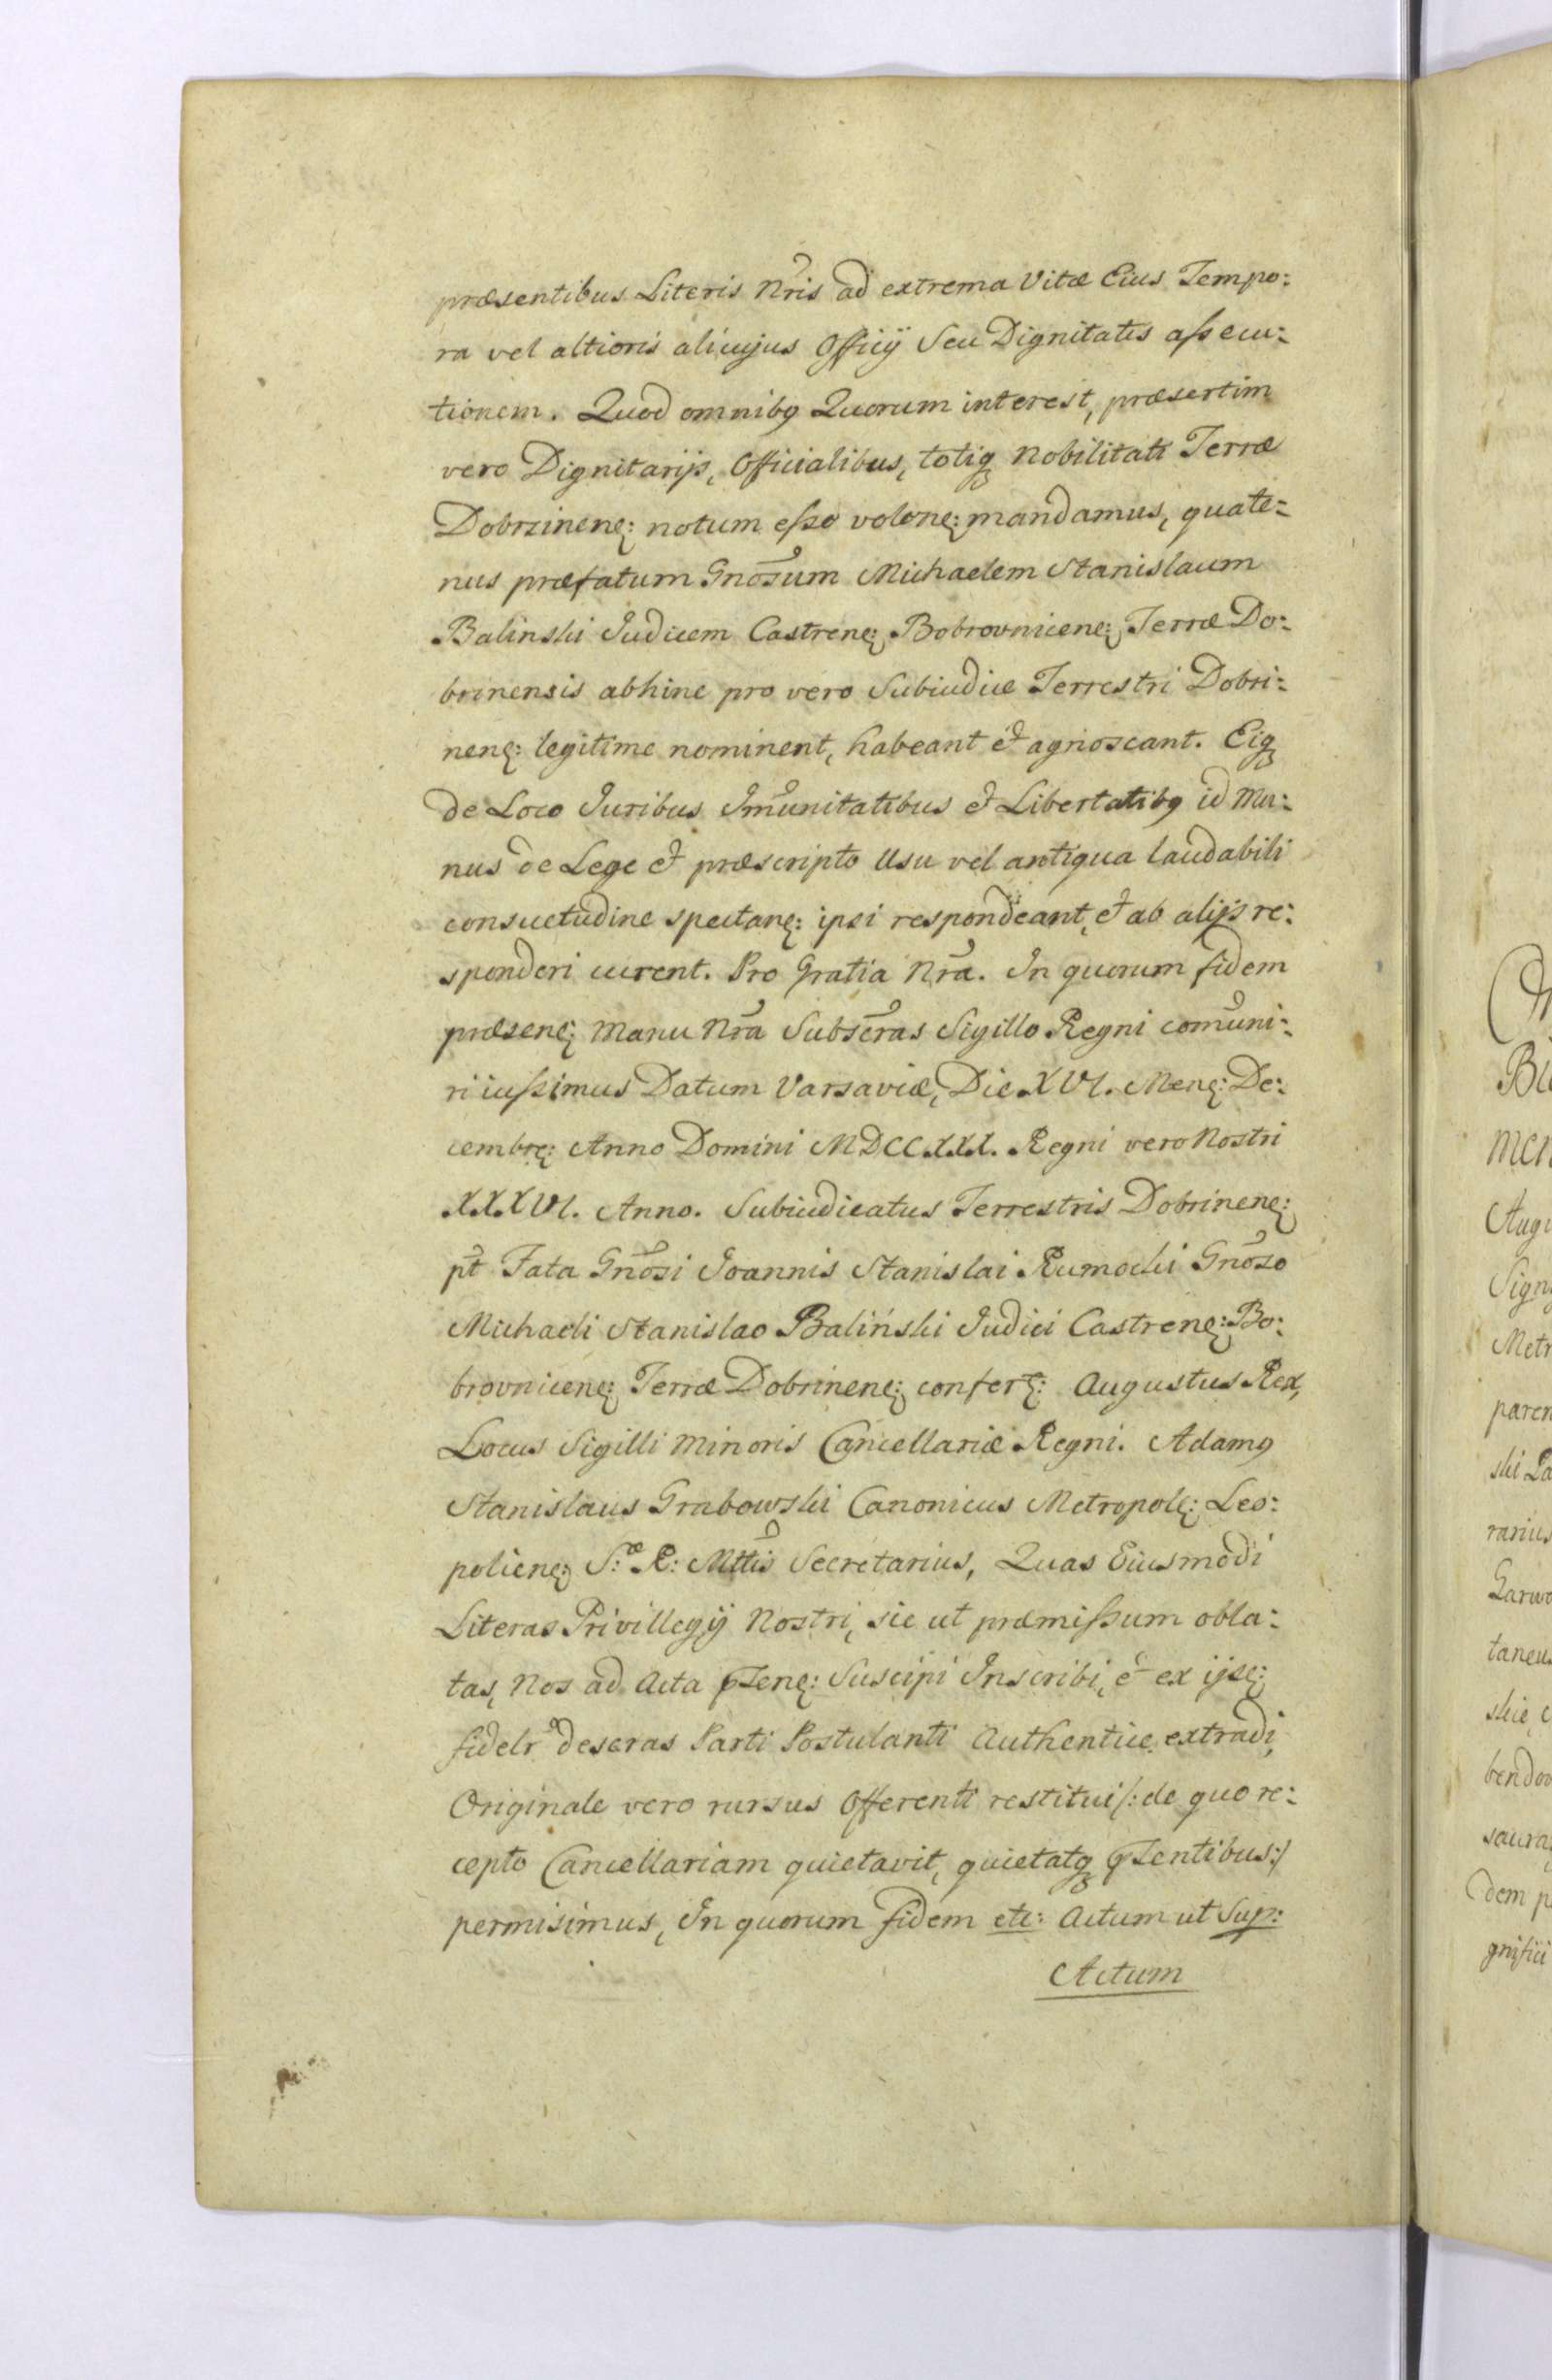 præsentibus Literis Nr̃is ad extrema Vitæ Eius Tempo:
ra vel altioris alicujus Officij Seu Dignitatis aſsecu:
tionem. Quod omnibꝰ Quorum interest, præsertim
vero Dignitarijs, Officialibus, totiqꝫ Nobilitati Terræ
Dobrzinenę: notum eſse volenę: mandamus, quate:
nus præfatum Gnõsum Michaelem Stanislaum
Balinski Iudicem Castrenę: Bobrovnicenę: Terræ Do:
brinensis abhinc pro vero Subiudice Terrestri Dobri:
nenę: legitime nominent, habeant et agnoscant. Eiqꝫ
de Loco Iuribus Im̃unitatibus et Libertatibꝰ id Mu:
nus de Lege et præscripto Usu vel antiqua laudabili
consuetudine spectanę: ipsi respondeant, et ab alijs re:
sponderi curent. Pro Gratia Nr̃a. In quorum fidem
præsenę: Manu Nr̃a Subscr̃as Sigillo Regni com̃uni:
ri iuſsimus Datum Varsaviæ, Die XVI. Menę: De:
cembrę: Anno Domini MDCCXXX. Regni vero Nostri
XXXVI. Anno. Subiudicatus Terrestris Dobrinenę:
pt̃ Fata Gnõsi Ioannis Stanislai Rumocki Gnõso
Michaeli Stanislao Baliński Iudici Castrenę: Bo:
brovnicenę: Terræ Dobrinenę: confert: Augustus Rex,
Locus Sigilli Minoris Cancellariæ Regni. Adamꝰ
Stanislaus Grabowski Canonicus Metropolę: Leo:
policnę: S:æ R: Mttis Secretarius, Quas Eiusmodi
Literas Privillegij Nostri, sic ut præmiſsum obla:
tas, Nos ad Acta pſenę: Suscipi Inscribi, et ex ijsę:
fidelr̃ descras Parti Postulanti Authentice extradi,
Originale vero rursus Offerenti restitui /: de quo re:
cepto Cancellariam quietavit, quietatqꝫ pſentibus :/
permisimus, In quorum fidem etc: Actum ut Sup:
Actum